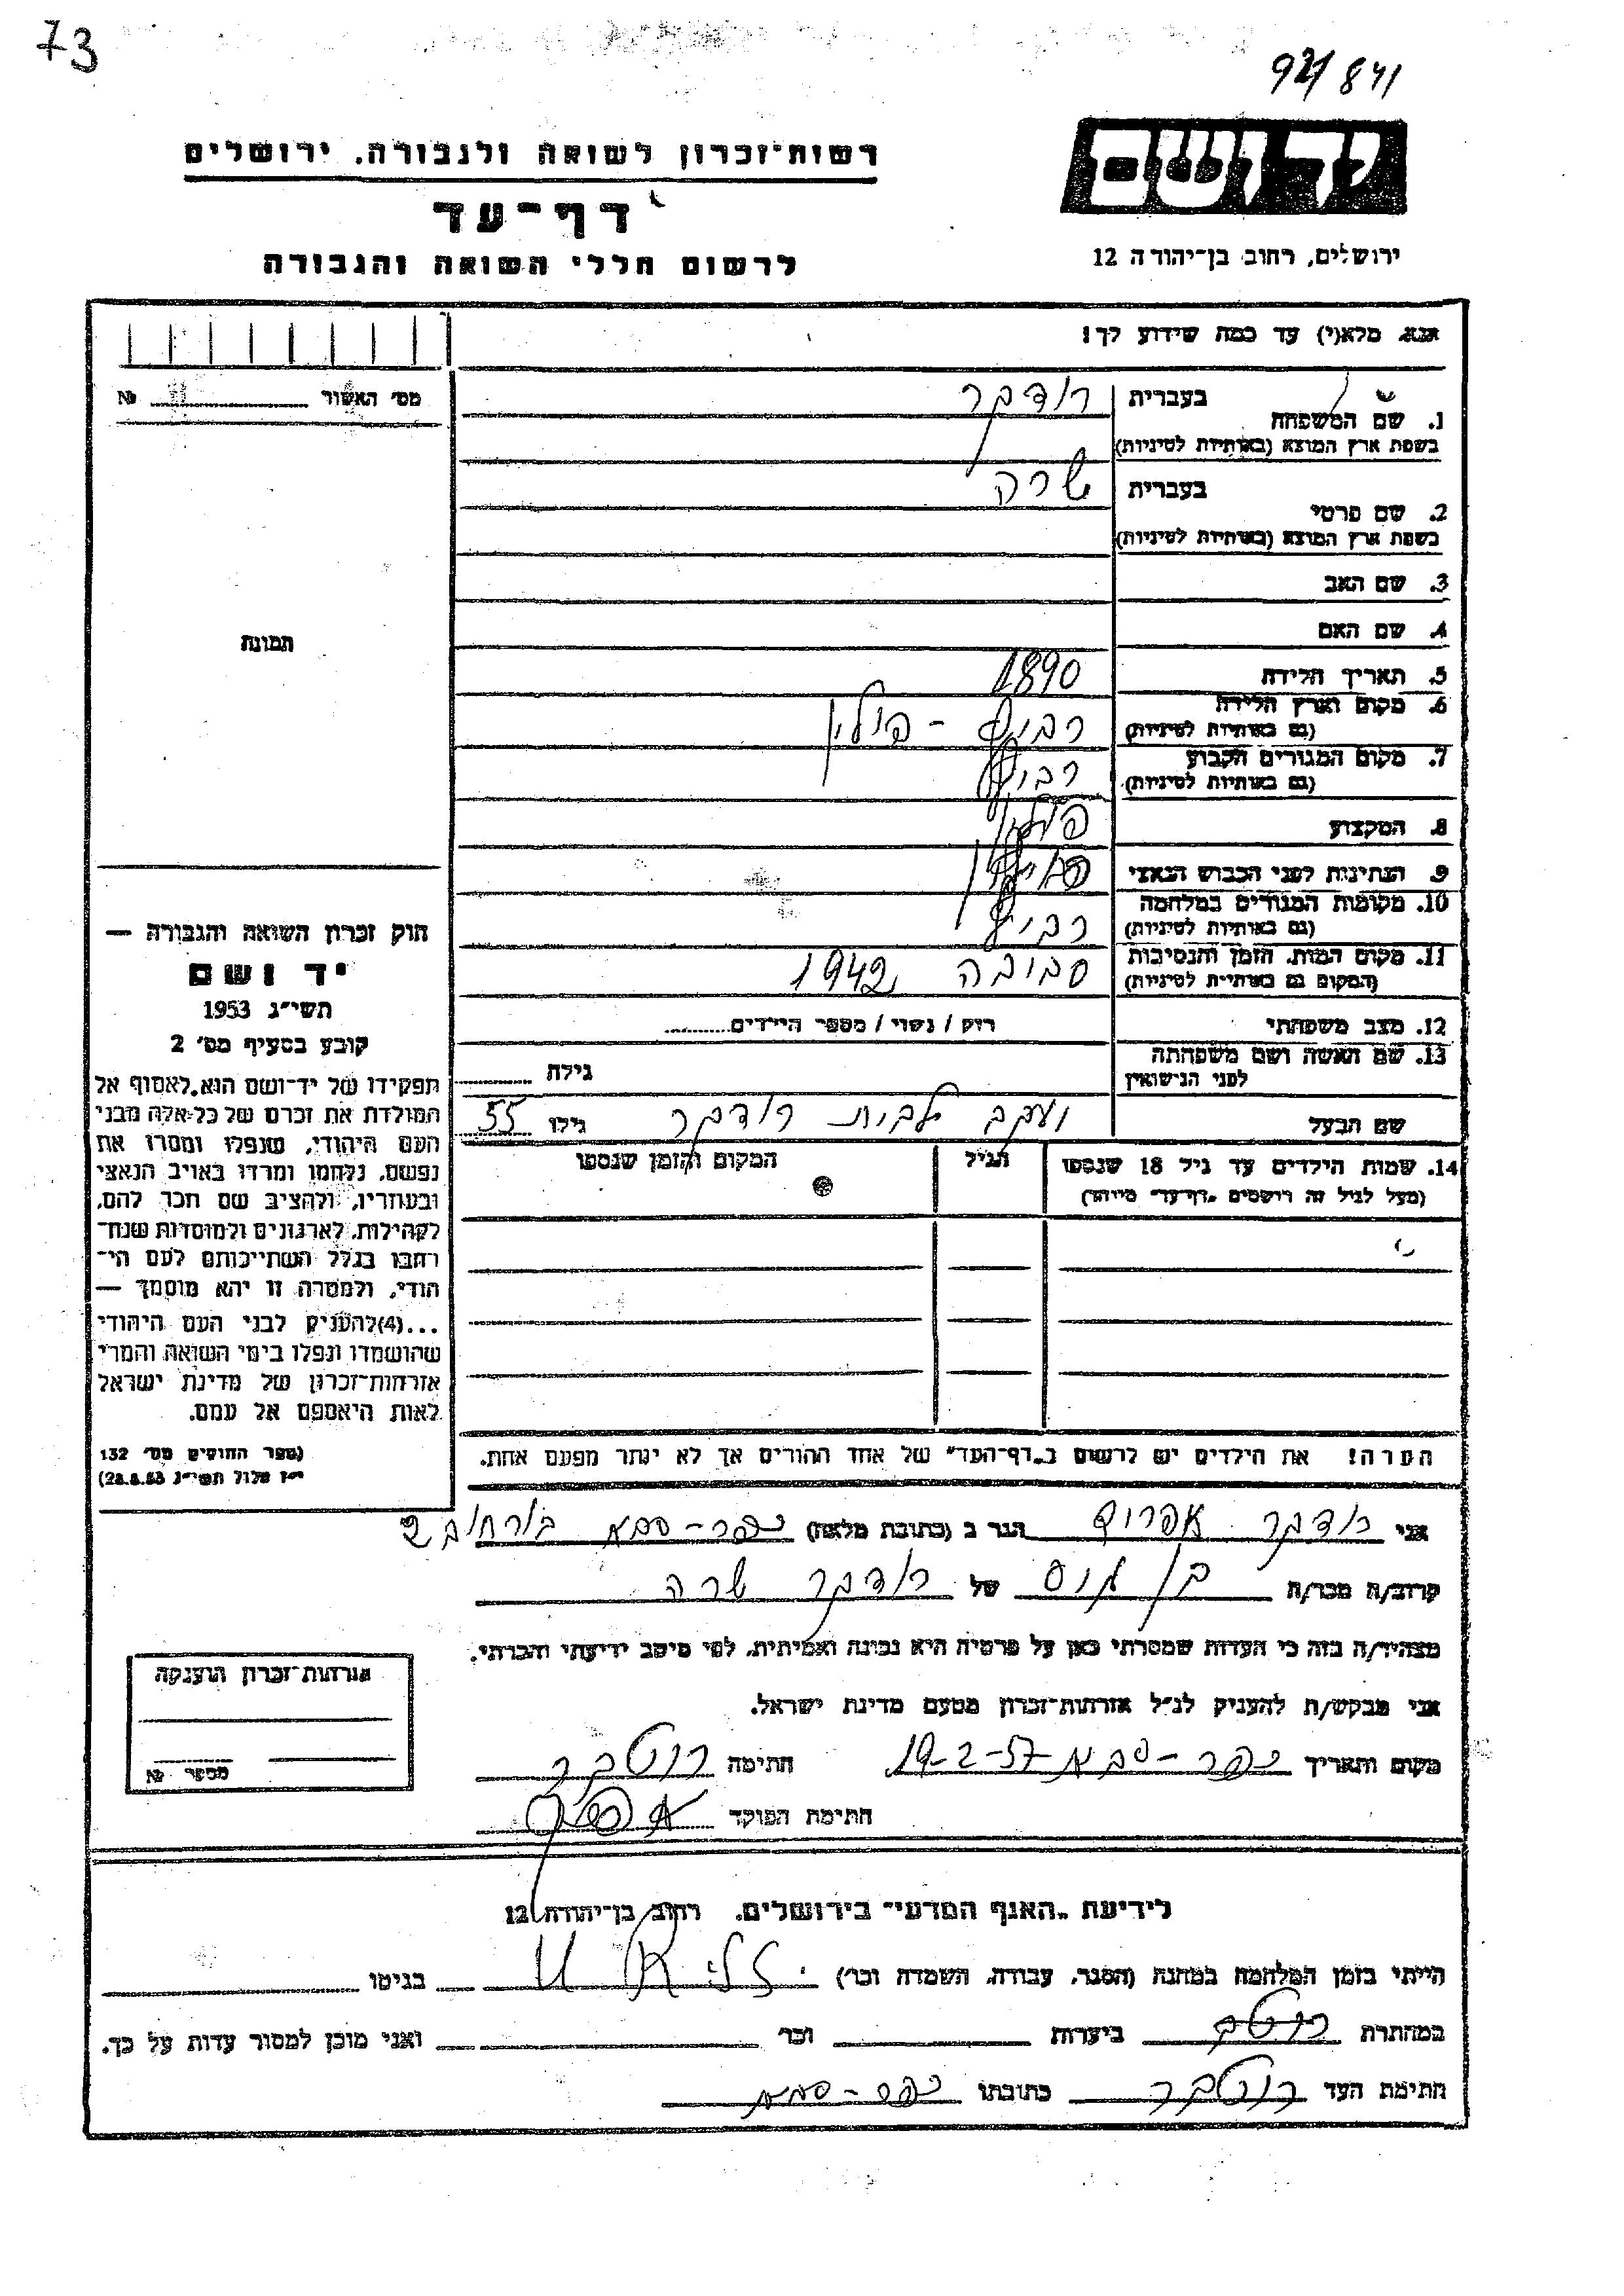 73
92/841
יד ושם
ירושלים, רחוב בן־יהודה 12
רשות־זכרון לשואה ולגבורה, ירושלים
דף־עד
לרשום חללי השואה והגבורה
אנא, מלא(י) עד כמה שידוע לך!
מס׳ האשור № 
1. שם המשפחה
בעברית
בשפת ארץ המוצא (באותיות לטיניות)
2. שם פרטי
בעברית שרה
בשפת ארץ המוצא (באותיות לטיניות)
3. שם האב
4. שם האם
תמונה
5. תאריך הלידה 1890
6. מקום וארץ הלידה
(גם באותיות לטיניות) פולין
7. מקום המגורים הקבוע
(גם באותיות לטיניות)
8. המקצוע
9. הנתינות לפני הכבוש הנאצי
10. מקומות המגורים במלחמה
(גם באותיות לטיניות)
11. מקום המות, הזמן והנסיבות
(המקום גם באותיות לטיניות) סביבה 1942
12. מצב משפחתי רווק / נשוי / מספר הילדים
13. שם האשה ושם משפחתה
לפני הנישואין גילה
שם הבעל יעקב לבית גילו 55
14. שמות הילדים עד גיל 18 שנספו
(מעל לגיל זה רושמים „דף־עד״ מיוחד)
הגיל
המקום והזמן שנספו
הערה! את הילדים יש לרשום ב„דף־העד״ של אחד ההורים אך לא יותר מפעם אחת.
חוק זכרון השואה והגבורה —
יד ושם
תשי״ג 1953
קובע בסעיף מס׳ 2
תפקידו של יד־ושם הוא לאסוף אל
המולדת את זכרם של כל־אלה מבני
העם היהודי, שנפלו ומסרו את
נפשם, נלחמו ומרדו באויב הנאצי
ובעוזריו, ולהציב שם וזכר להם,
לקהילות, לארגונים ולמוסדות שנח־
רבו בגלל השתייכותם לעם הי־
הודי, ולמטרה זו יהא מוסמך —
...(4)להעניק לבני העם היהודי
שהושמדו ונפלו בימי השואה והמרי
אזרחות־זכרון של מדינת ישראל
לאות היאספם אל עמם.
(ספר החוקים מס׳ 132
י״ז אלול תשי״ג 28.8.53)
אני אפרים הגר ב (כתובת מלאה) כפר־סבא
קרוב/ה מכר/ה של שרה
מצהיר/ה בזה כי העדות שמסרתי כאן על פרטיה היא נכונה ואמיתית, לפי מיטב ידיעתי והכרתי.
אני מבקש/ת להעניק לנ״ל אזרחות־זכרון מטעם מדינת ישראל.
מקום ותאריך כפר־סבא 19-2-57 חתימה
חתימת הפוקד
אזרחות־זכרון הוענקה
מספר №
לידיעת „האגף המדעי״ בירושלים, רחוב בן־יהודה 12
הייתי בזמן המלחמה במחנה (הסגר, עבודה, השמדה וכו׳) בגיטו
במחתרת ביערות וכו׳ ואני מוכן למסור עדות על כך.
חתימת העד כתובתו כפר־סבא